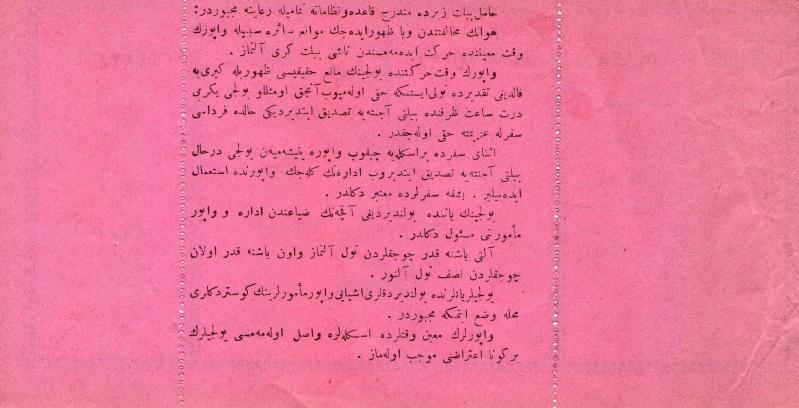 حامل بیلت زیرده مندرج قاعده‌ونظاماته تمامیله رعایته مجبوردر:
هوانك مخالفتندن ویا ظهورایده‌جك موانع سائره سببیله واپورك
وقت معیننده حرکت ایده‌مه‌مسندن ناشی بیلت کری آلنماز .
واپورك وقت حرکتنده یولجینك مانع حقیقیسی ظهوریله کیرویه
قالدیغی تقدیرده نولی‌ایستمکه حقی اوله‌میوب‌آنجق اومثللو یولجی یکرمی
درت ساعت ظرفنده بیلتی آجنته‌یه تصدیق ایتدیردیکی حالده فرداسی
سفرله عزیمته حقی اوله‌جقدر .
اثنای سفرده براسکله‌یه چیقوب واپوره یتیشه‌میه‌ن یولجی درحال
بیلتی آجنته‌یه تصدیق ایتدیروب اداره‌نك کله‌جك واپورنده استعمال
ایده‌بیلیر . بشقه سفرلرده معتبر دکلدر .
یولجینك یاننده بولندیردیغی آقچه‌نك ضیاعندن اداره و واپور
مأمورینی مسئول دکلدر .
آلتی یاشنه قدر چوجقلردن نول آلنماز واون یاشنه قدر اولان
چوجقلردن نصف نول آلنور .
یولجیلریانلرنده بولندیردقلری‌اشیایی‌واپورمأمورلرینك‌کوستردکلری
محله وضع ایتمکه مجبوردر .
واپورلرك معین وقتلرده اسکله‌لره واصل اوله‌مه‌مسی یولجیلرك
برکونا اعتراضنی موجب اوله‌ماز .